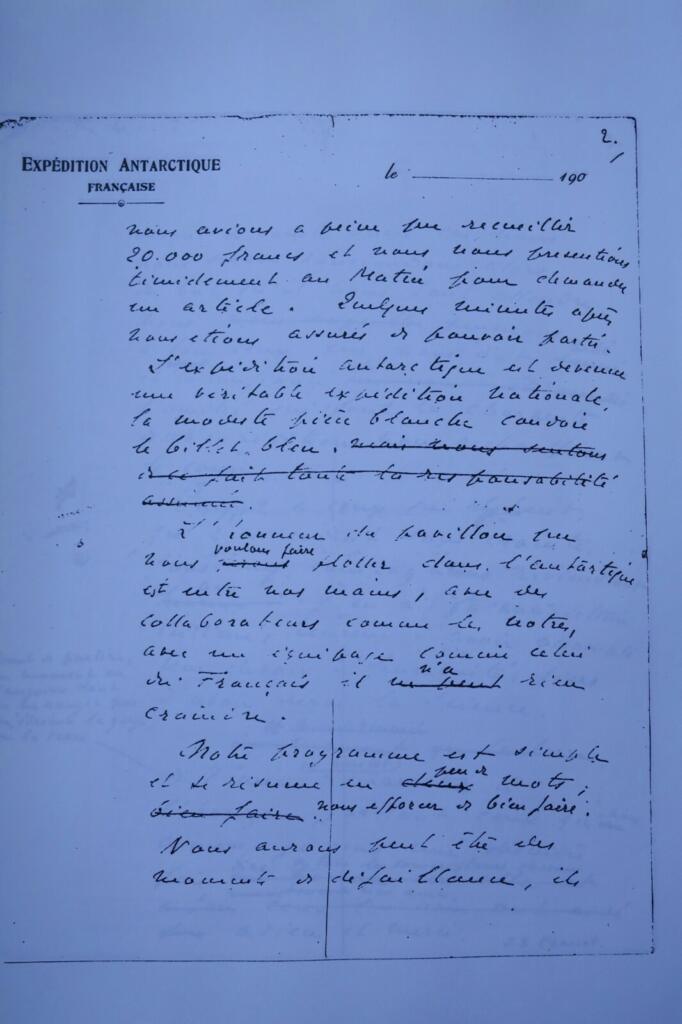 2.
EXPÉDITION ANTARCTIQUE
FRANÇAISE
le 190
nous avions a peine pu recueillir
20.000 francs et nous nous presentions
timidement au Matin pour demander
un article. Quelques minutes après
nous etions assurés de pouvoir partir.
L'expédition antarctique est devenue
une véritable expédition nationale,
la modeste pièce blanche coudoie
le billet bleu. mais nous sentons
de ce fait toute la responsabilité
assumée.
L'honneur du pavillon que
voulons faire
nous flotter dans l'antartique
est entre nos mains, avec des
collaborateurs comme les notres,
avec un équipage comme celui
n'a
du Français il ne peut rien
craindre.
Notre programme est simple
peu de
et se résume en deux mots;
bien faire. nous efforcer de bien faire.
Nous aurons peut être des
moments de défaillance, ils